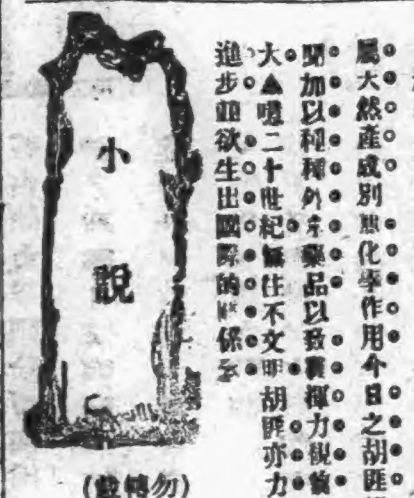 屬大然產或別 化學作用今日之胡匪
加以種種外來藥品以致 揮力
大▲噫二十世紀無往不文明胡匪亦力
進步並欲生出國際的 係云
小說
(勿轉載)